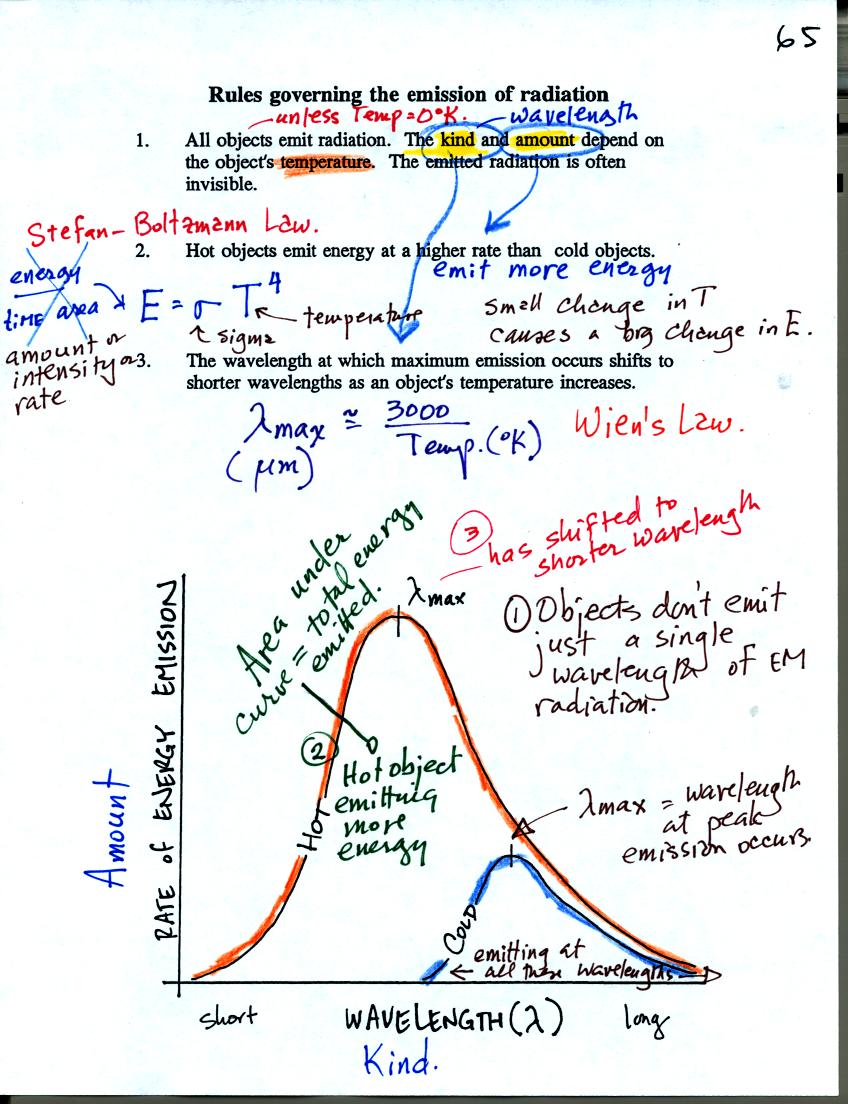 65
Rules governing the emission of radiation
unless Temp=0°K.
wavelength
1. All objects emit radiation. The kind and amount depend on
the object's temperature. The emitted radiation is often
invisible.
Stefan-Boltzmann Law.
2. Hot objects emit energy at a higher rate than cold objects.
emit more energy
energy
time area
E = σ T⁴
temperature
sigma
small change in T
causes a big change in E.
amount or
intensity or
rate
3. The wavelength at which maximum emission occurs shifts to
shorter wavelengths as an object's temperature increases.
λmax ≅ 3000
Temp.(°K)
(μm)
Wien's Law.
③ has shifted to
shorter wavelength
λmax
Area under
curve = total energy
emitted.
① Objects don't emit
just a single
wavelength of EM
radiation.
②
Hot object
emitting
more
energy
HOT
λmax = wavelength
at peak
emission occurs.
COLD
← emitting at
all these wavelengths
Amount
RATE of ENERGY EMISSION
short
WAVELENGTH (λ)
long
Kind.